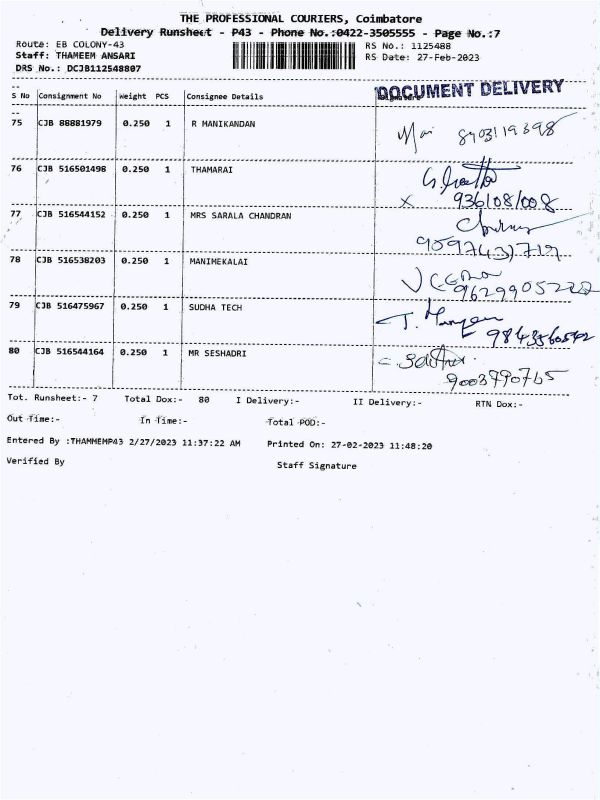 THE PROFESSIONAL COURIERS, Coimbatore
Delivery Runsheet - P43 - Phone No.:0422-3505555 - Page No.:7
Route: EB COLONY-43
RS No.: 1125488
Staff: THAMEEM ANSARI
RS Date: 27-Feb-2023
DRS No.: DCJB112548807
DOCUMENT DELIVERY
S No Consignment No Weight PCS Consignee Details
75 CJB 88881979 0.250 1 R MANIKANDAN
Mai 8903119398
76 CJB 516501498 0.250 1 THAMARAI
X 936108/008
77 CJB 516544152 0.250 1 MRS SARALA CHANDRAN
78 CJB 516538203 0.250 1 MANIMEKALAI
79 CJB 516475967 0.250 1 SUDHA TECH
9843560542
80 CJB 516544164 0.250 1 MR SESHADRI
9003790765
Tot. Runsheet:- 7 Total Dox:- 80 I Delivery:- II Delivery:- RTN Dox:-
Out Time:- In Time:- Total POD:-
Entered By :THAMMEMP43 2/27/2023 11:37:22 AM Printed On: 27-02-2023 11:48:20
Verified By Staff Signature